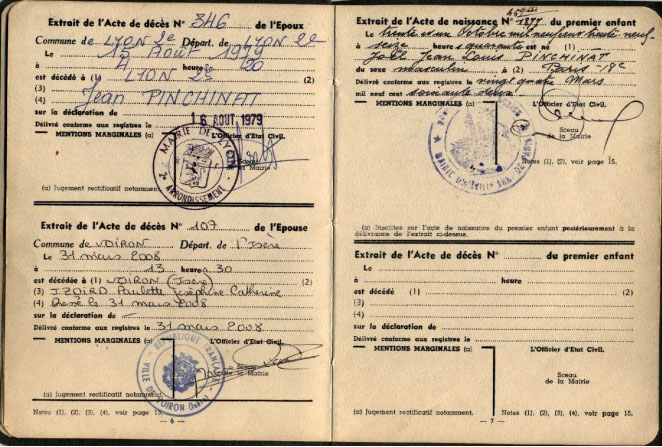 Extrait de l'Acte de décès N° 346 de l'Epoux
Commune de LYON 2e Départ. de LYON 2e
Le 15 Août 1979
à 4 heures 20
est décédé à (1) LYON 2e (2)
(3)
(4) Jean PINCHINAT
sur la déclaration de
16 AOUT 1979
Délivré conforme aux registres le
MENTIONS MARGINALES (a) L'Officier d'Etat Civil.
MAIRIE DE LYON
2e ARRONDISSEMENT
Sceau
de la Mairie
(a) Jugement rectificatif notamment.
Extrait de l'Acte de décès N° 107 de l'Epouse
Commune de VOIRON Départ. de l'Isère
Le 31 mars 2008
à 13 heures 30
est décédée à (1) VOIRON (Isère) (2)
(3) IZOIRD Paulette Joséphine Catherine
(4) Dressé le 31 mars 2008
sur la déclaration de —
Délivré conforme aux registres le 31 mars 2008
MENTIONS MARGINALES (a) L'Officier d'Etat Civil.
REPUBLIQUE FRANCAISE
VILLE DE VOIRON (Isère)
Sceau
de la Mairie
(a) Jugement rectificatif notamment.
Notes (1), (2), (3), (4), voir page 15.
— 6 —
Extrait de l'Acte de naissance N° 1877 du premier enfant
Le trente et un Octobre mil neuf cent trente neuf
à seize heures quarante est né (1)
Joël Jean Louis PINCHINAT
du sexe masculin à (2) Paris-18e
Délivré conforme aux registres le vingt quatre Mars
mil neuf cent soixante deux
MENTIONS MARGINALES (a) L'Officier d'Etat Civil.
Sceau
de la Mairie
Notes (1), (2), voir page 15.
(a) Inscrites sur l'acte de naissance du premier enfant postérieurement à la
délivrance de l'extrait ci-dessus.
Extrait de l'Acte de décès N° du premier enfant
Le
à heure
est décédé (1) (2)
(3)
(4)
sur la déclaration de
Délivré conforme aux registres le
MENTIONS MARGINALES (a) L'Officier d'Etat Civil.
Sceau
de la Mairie
(a) Jugement rectificatif notamment. Notes (1), (2), (3), (4), voir page 15.
— 7 —